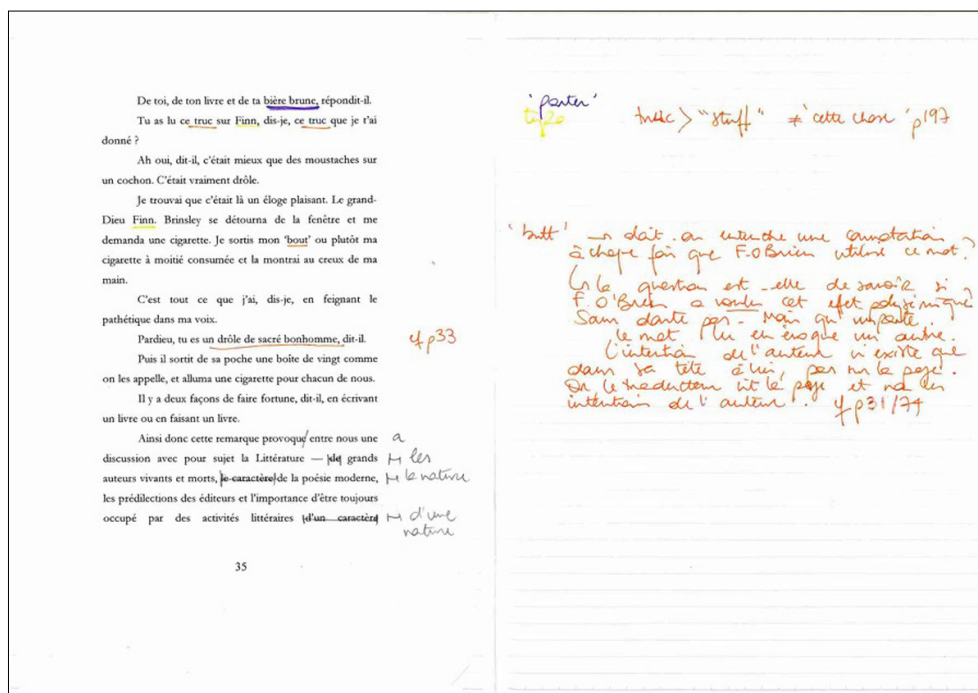 De toi, de ton livre et de ta bière brune, répondit-il.
Tu as lu ce truc sur Finn, dis-je, ce truc que je t'ai
donné ?
Ah oui, dit-il, c'était mieux que des moustaches sur
un cochon. C'était vraiment drôle.
Je trouvai que c'était là un éloge plaisant. Le grand-
Dieu Finn. Brinsley se détourna de la fenêtre et me
demanda une cigarette. Je sortis mon 'bout' ou plutôt ma
cigarette à moitié consumée et la montrai au creux de ma
main.
C'est tout ce que j'ai, dis-je, en feignant le
pathétique dans ma voix.
Pardieu, tu es un drôle de sacré bonhomme, dit-il.
cf p33
Puis il sortit de sa poche une boîte de vingt comme
on les appelle, et alluma une cigarette pour chacun de nous.
Il y a deux façons de faire fortune, dit-il, en écrivant
un livre ou en faisant un livre.
Ainsi donc cette remarque provoqu entre nous une
a
discussion avec pour sujet la Littérature — de grands
les
auteurs vivants et morts, le caractère de la poésie moderne,
la nature
les prédilections des éditeurs et l'importance d'être toujours
occupé par des activités littéraires d'un caractère
d'une
nature
35
'porter'
typo
truc > "stuff" ≠ 'cette chose' p197
'butt' → doit-on entendre une connotation
à chaque fois que F. O'Brien utilise ce mot ?
↳ la question est-elle de savoir si
F. O'Brien a voulu cet effet polysémique ?
Sans doute pas. Mais qu'importe.
le mot lu en évoque un autre.
L'intention de l'auteur n'existe que
dans sa tête à lui, pas sur la page.
Or le traducteur lit la page et non les
intentions de l'auteur. cf p31/74